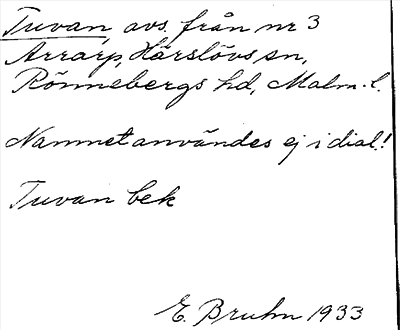 Tuvan, avs. från nr 3
Arrarp, Härslövs sn,
Rönnebergs hd, Malm. l.
Namnet användes ej i dial.!
Tuvan bek
E. Bruhn 1933